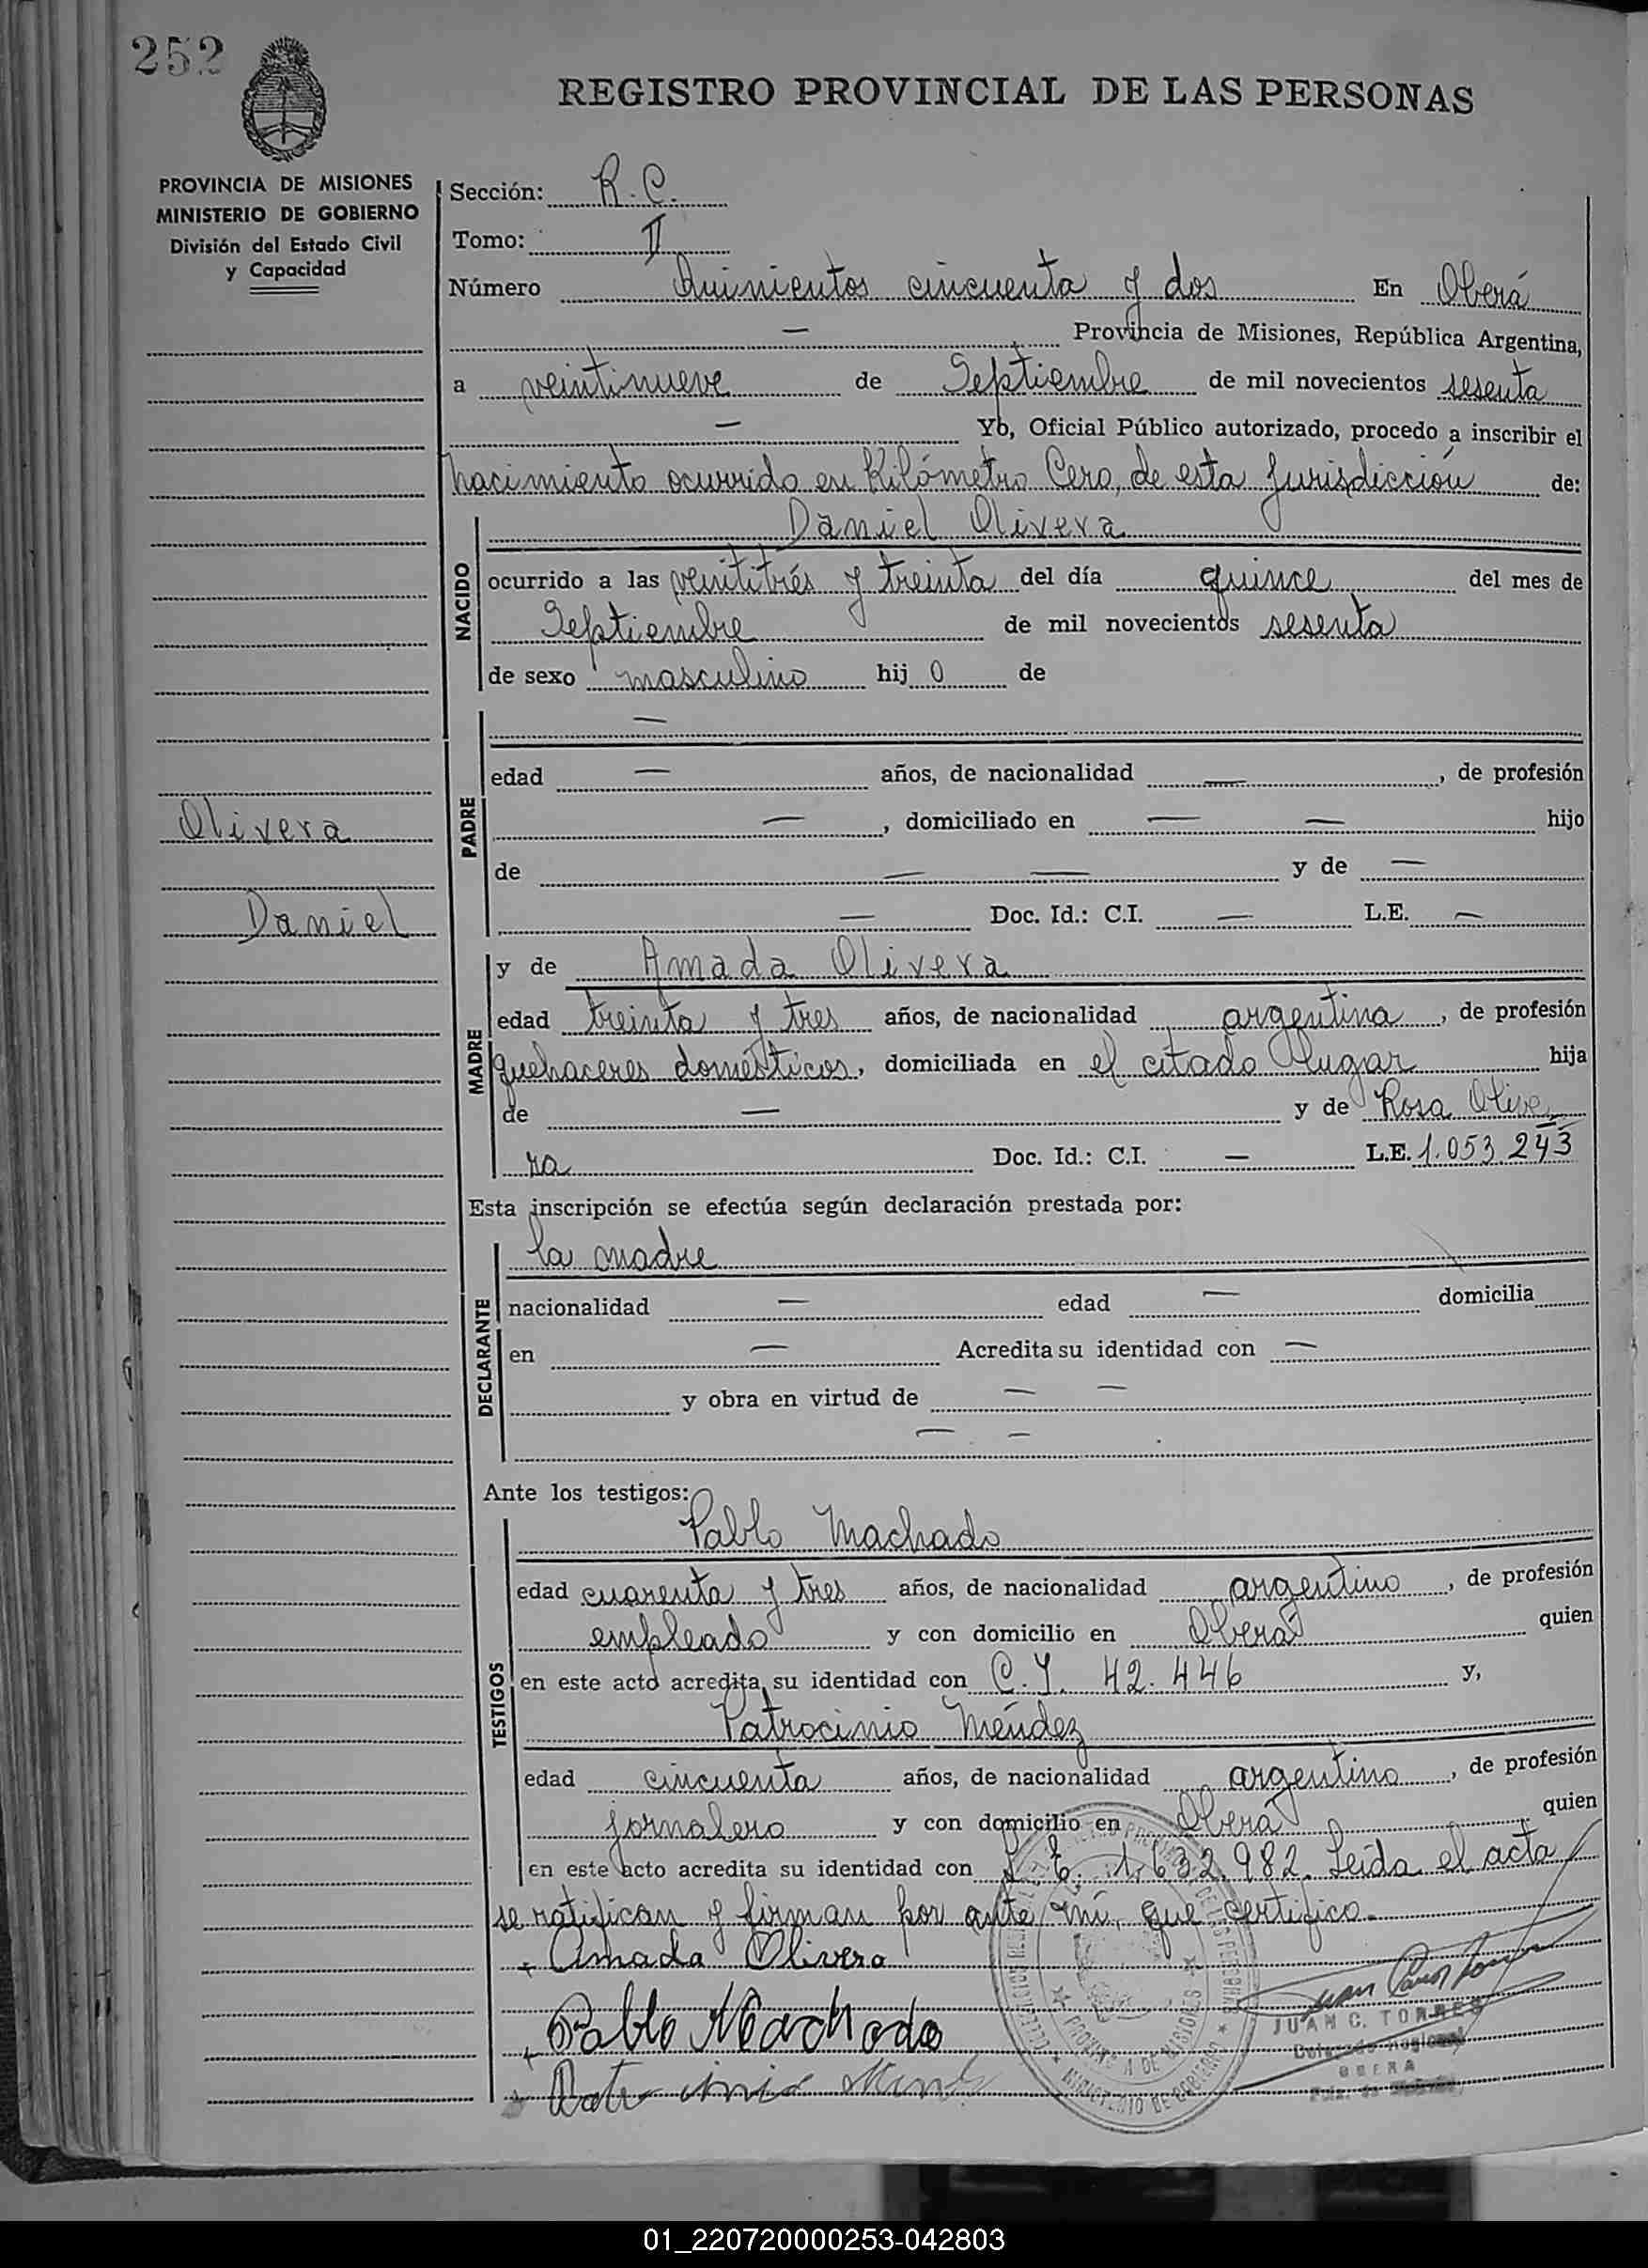 252
REGISTRO PROVINCIAL DE LAS PERSONAS
PROVINCIA DE MISIONES
MINISTERIO DE GOBIERNO
División del Estado Civil
y Capacidad
Sección: R.C.
Tomo: II
Número Quinientos cincuenta y dos En Oberá
— Provincia de Misiones, República Argentina,
a veintinueve de Septiembre de mil novecientos sesenta
— Yo, Oficial Público autorizado, procedo a inscribir el
nacimiento ocurrido en Kilómetro Cero, de esta Jurisdicción de:
NACIDO
Daniel Olivera
ocurrido a las veintitrés y treinta del día quince del mes de
Septiembre de mil novecientos sesenta
de sexo masculino hij o de
PADRE
—
edad — años, de nacionalidad —, de profesión
—, domiciliado en — — hijo
de — — y de —
— Doc. Id.: C.I. — L.E. —
Olivera
Daniel
MADRE
y de Amada Olivera
edad treinta y tres años, de nacionalidad argentina, de profesión
quehaceres domésticos, domiciliada en el citado lugar hija
de — y de Rosa Olive
ra Doc. Id.: C.I. — L.E. 1.053.243
Esta inscripción se efectúa según declaración prestada por:
DECLARANTE
la madre
nacionalidad — edad — domicilia
en — Acredita su identidad con —
y obra en virtud de — —
— —
Ante los testigos:
TESTIGOS
Pablo Machado
edad cuarenta y tres años, de nacionalidad argentino, de profesión
empleado y con domicilio en Oberá quien
en este acto acredita su identidad con C.I. 42.446 y,
Patrocinio Méndez
edad cincuenta años, de nacionalidad argentino, de profesión
jornalero y con domicilio en Oberá quien
en este acto acredita su identidad con L.E. 1.632.982. Leída el acta
se ratifican y firman por ante mí, que certifico.
+ Amada Olivera
+ Pablo Machado
JUAN C. TORRES
Delegado Regional
OBERA
PROVINCIA DE MISIONES
MINISTERIO DE GOBIERNO
01_220720000253-042803